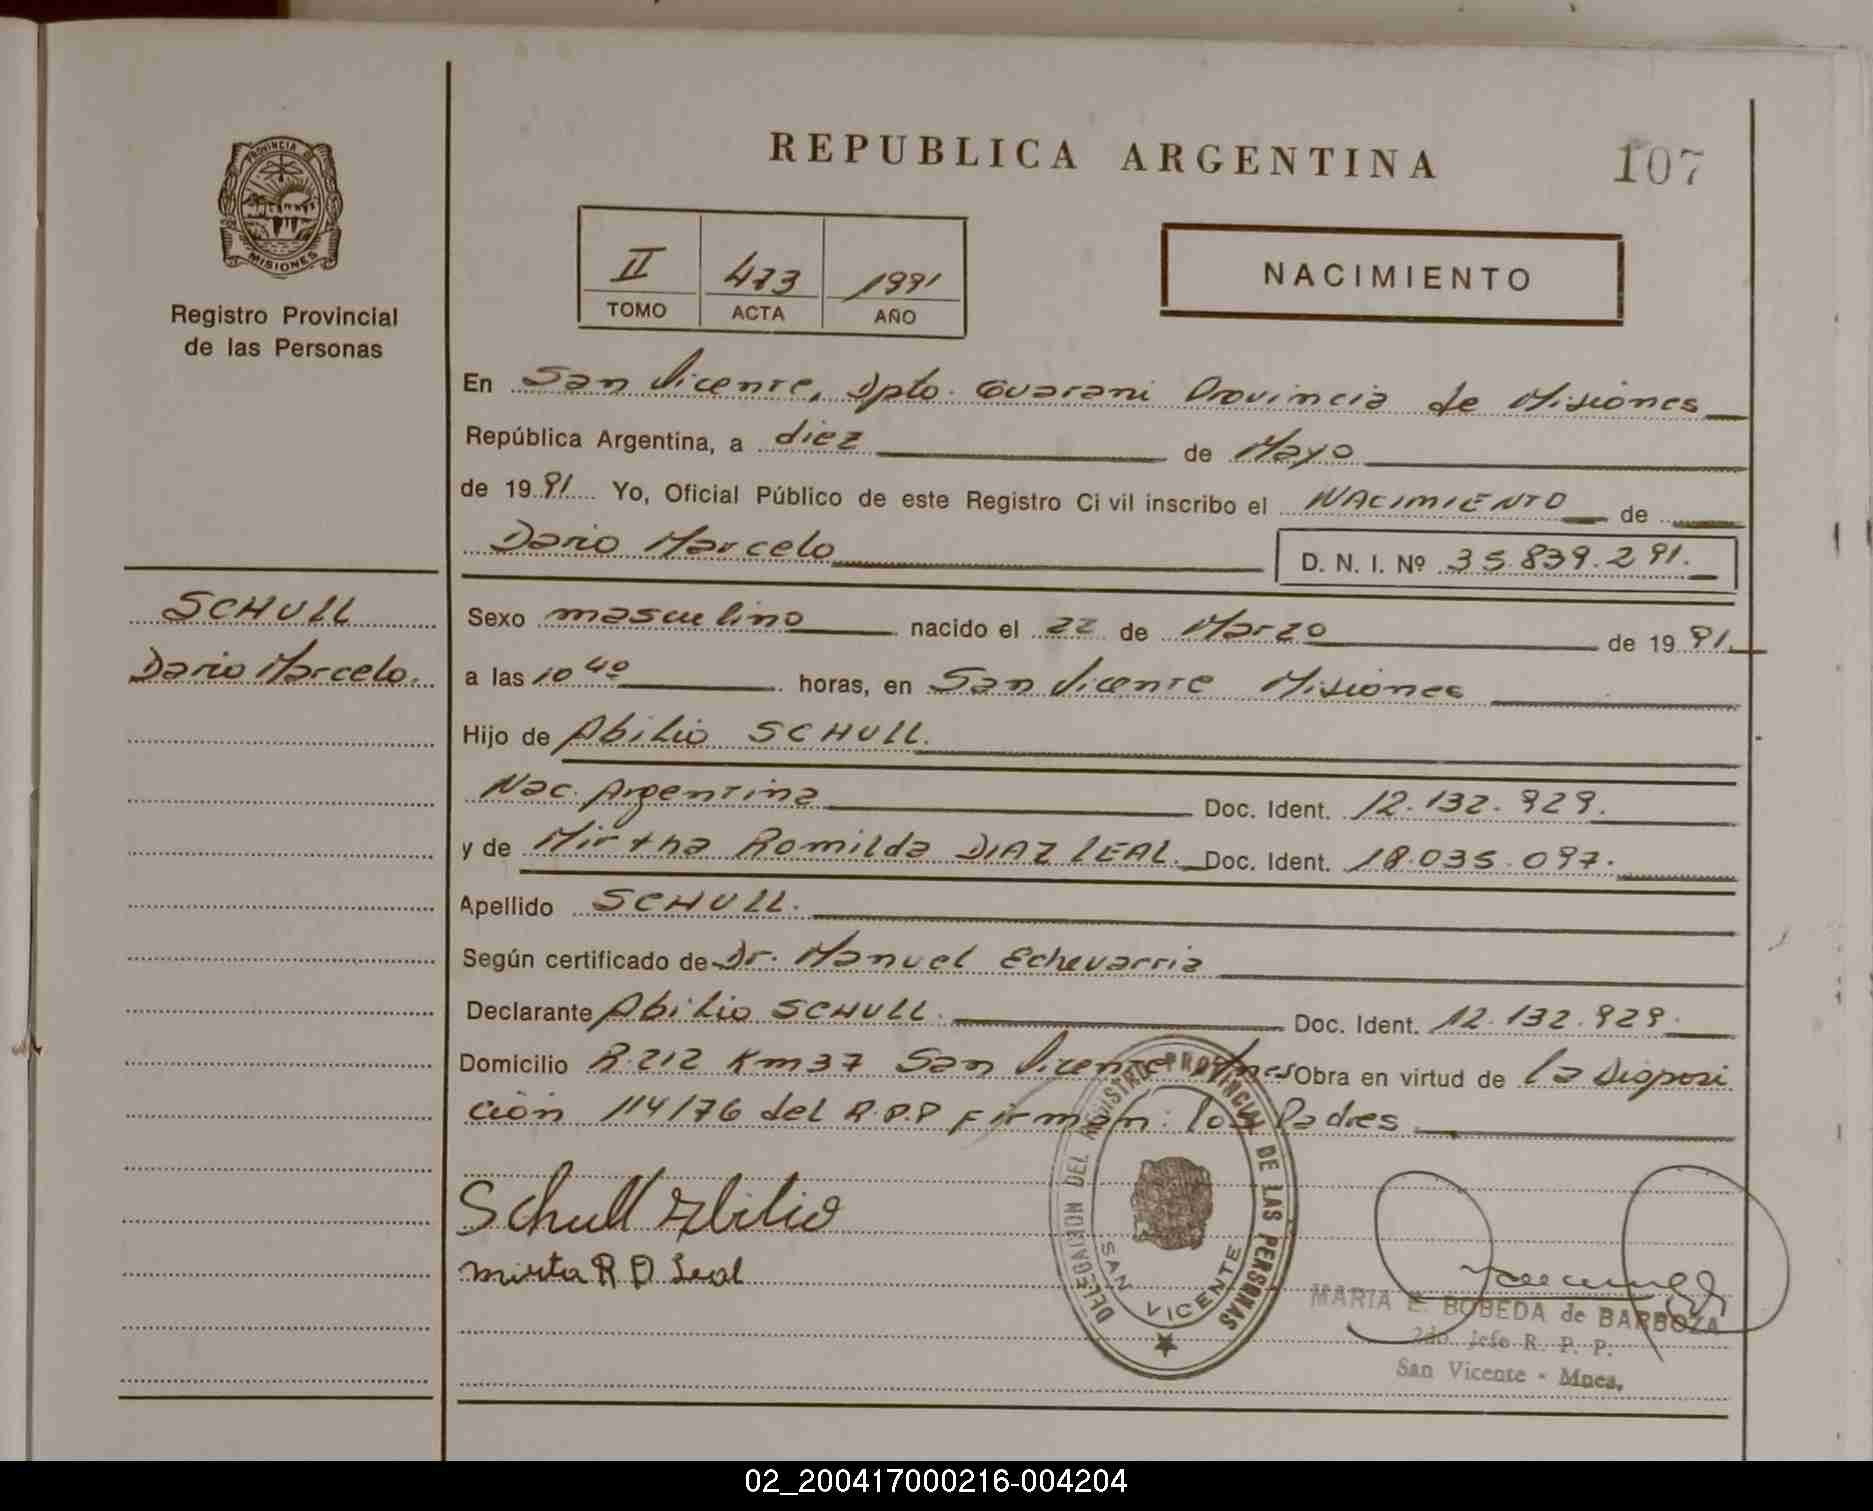 REPUBLICA ARGENTINA
107
PROVINCIA DE
MISIONES
Registro Provincial
de las Personas
II 473 1991
TOMO ACTA AÑO
NACIMIENTO
En San Vicente, Dpto. Guarani Provincia de Misiones
República Argentina, a diez de Mayo
de 1991 Yo, Oficial Público de este Registro Civil inscribo el NACIMIENTO de
Dario Marcelo D. N. I. Nº 35.839.291.
SCHULL
Dario Marcelo.
Sexo masculino nacido el 22 de Marzo de 1991.
a las 10 40 horas, en San Vicente Misiones
Hijo de Abilio SCHULL.
Nac. Argentina Doc. Ident. 12.132.929.
y de Mirtha Romilda DIAZ LEAL. Doc. Ident. 18.035.097.
Apellido SCHULL.
Según certificado de Dr. Manuel Echevarria
Declarante Abilio SCHULL. Doc. Ident. 12.132.929.
Domicilio R.212 Km37 San Vicente Mnes Obra en virtud de la disposi
ción 114/76 del R.P.P Firman: los Padres
Schull Abilio
mirta R D Leal
DELEGACION DEL REGISTRO PROVINCIAL DE LAS PERSONAS
SAN VICENTE
MARIA E. BOBEDA de BARBOZA
2do. jefe R. P. P.
San Vicente - Mnes.
02_200417000216-004204